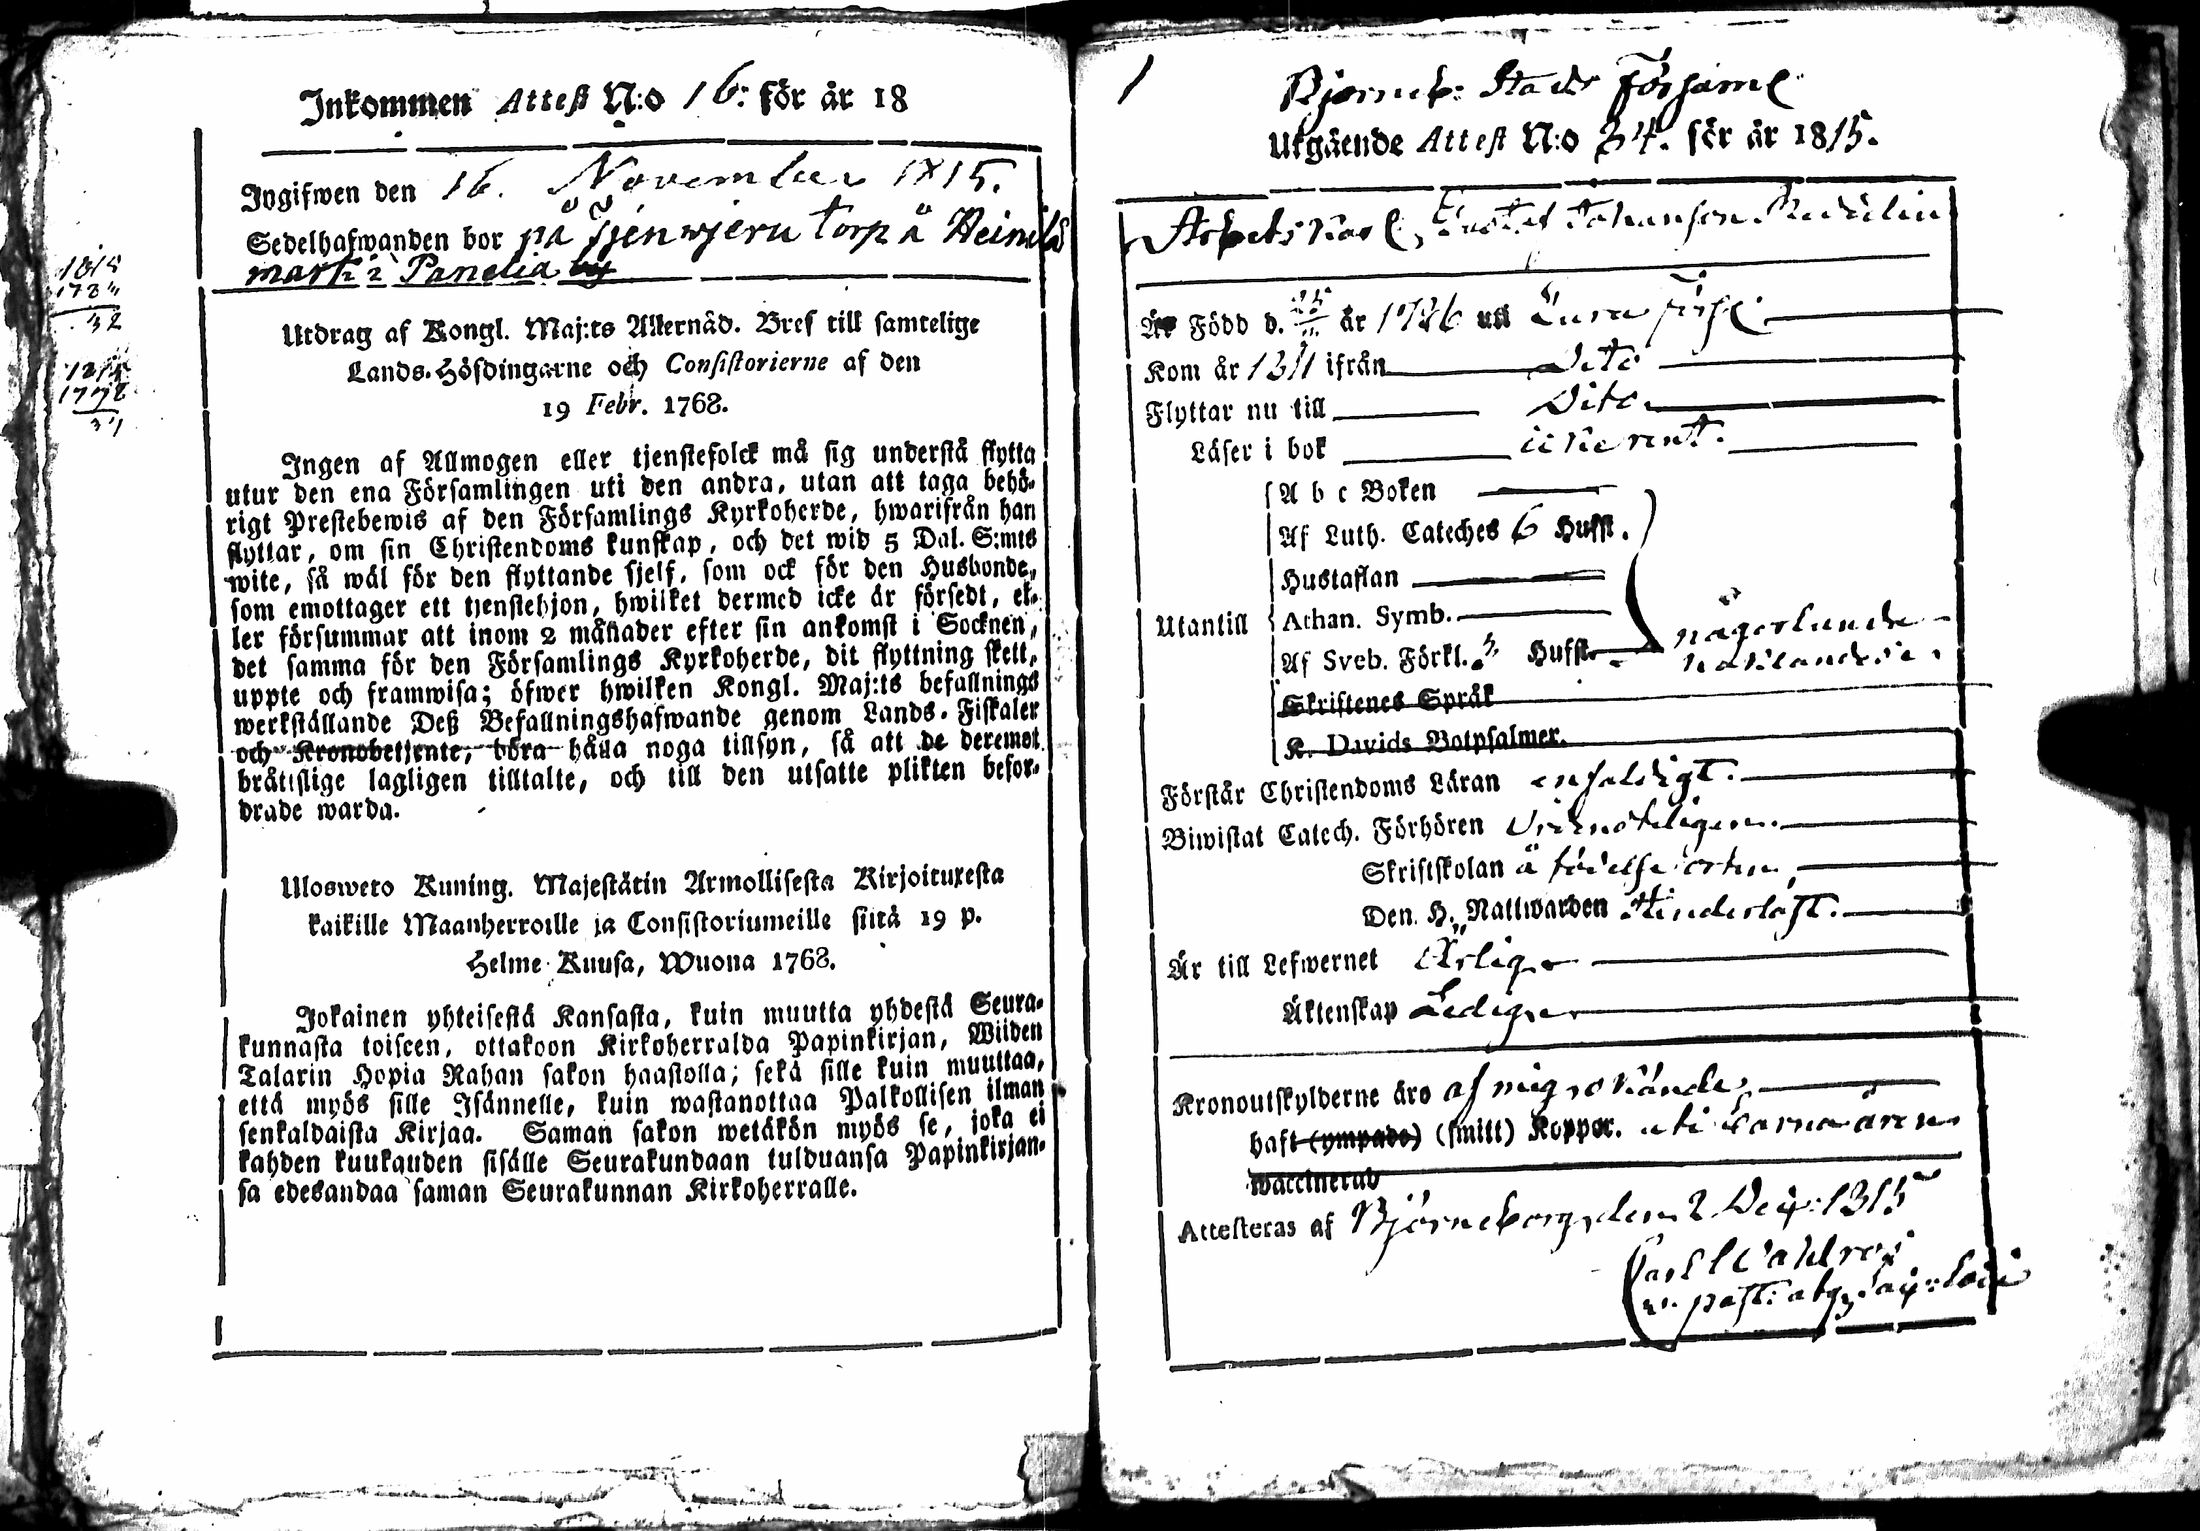 Inkommen Attest N:o 16: för år 18
Ingifwen den 16. November 1815.
Sedelhafwanden bor på torp å
mark i Panelia
1815
32
Utdrag af Kongl. Maj:ts Allernåd. Bref till samtelige
Lands-Höfdingarne och Consistorierne af den
19 Febr. 1768.
Ingen af Allmogen eller tjenstefolck må sig understå flytta
utur den ena Församlingen uti den andra, utan att taga behö-
rigt Prestebewis af den Församlings Kyrkoherde, hwarifrån han
flyttar, om sin Christendoms kunskap, och det wid 5 Dal. S:mts
wite, så wäl för den flyttande sjelf, som ock för den Husbonde,
som emottager ett tjenstehjon, hwilket dermed icke är försedt, el-
ler försummar att inom 2 månader efter sin ankomst i Socknen,
det samma för den Församlings Kyrkoherde, dit flyttning skett,
uppte och framwisa; öfwer hwilken Kongl. Maj:ts befallnings
werkställande Deß Befallningshafwande genom Lands-Fiskaler
och Kronobetjente, böra hålla noga tillsyn, så att de deremot
bråttslige lagligen tilltalte, och till den utsatte plikten befor-
drade warda.
Uloswetо Kuning. Majestätin Armollisesta Kirjoituxesta
kaikille Maanherroille ja Consistoriumeille siitä 19 p.
Helme Kuusa, Wuona 1768.
Jokainen yhteisestä Kansasta, kuin muutta yhdestä Seura-
kunnasta toiseen, ottakoon Kirkoherralda Papinkirjan, Wiiden
Talarin Hopia Rahan sakon haastolla; sekä sille kuin muuttaa,
että myös sille Isännelle, kuin wastanottaa Palkollisen ilman
senkaldaista Kirjaa. Saman sakon wetäkön myös se, joka ei
kahden kuukauden sisälle Seurakundaan tulduansa Papinkirjan-
sa edesandaa saman Seurakunnan Kirkoherralle.
1
Björneb: Stads Församl
Utgående Attest N:o 34. för år 1815.
Arbets Karl, Gustaf Johansson
Är Född d. år uti Eura
Kom år 1811 ifrån Dito
Flyttar nu till Dito
Läser i bok rent.
A b c Boken
Af Luth. Cateches 6 Hufst.
Hustaflan
Utantill
Athan. Symb.
någorlunda
Af Sveb. Förkl. Hufst.
Skriftenes Språk
K. Davids Botpsalmer.
Förstår Christendoms Läran enfaldigt.
Biwistat Catech. Förhören
Skriftskolan å födelse orten,
Den H. Nattwarden
Är till Lefwernet Ärlig
Äktenskap Ledig
Kronoutskylderne äro af mig okände,
haft (ympade) (smitt) Koppor. uti barna åren
waccinerad
Attesteras af Björneborg den 2 1815